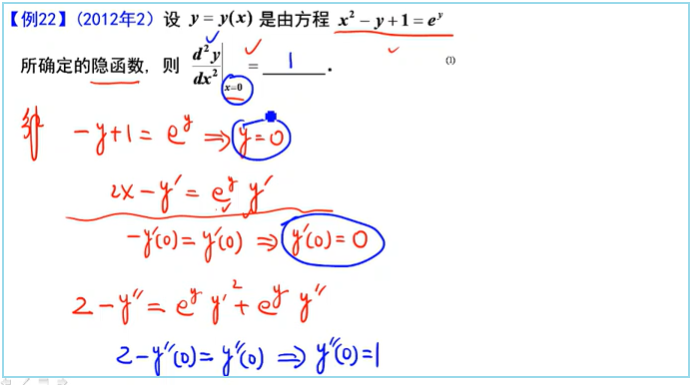 【例22】(2012年2) 设 y = y(x) 是由方程 x² − y + 1 = eʸ
所确定的隐函数，则 d²y/dx²|ₓ₌₀ = 1 .
(1)
解 −y+1 = eʸ ⇒ y = 0
2x − y′ = eʸ y′
−y′(0) = y′(0) ⇒ y′(0) = 0
2 − y″ = eʸ y′² + eʸ y″
2 − y″(0) = y″(0) ⇒ y″(0) = 1